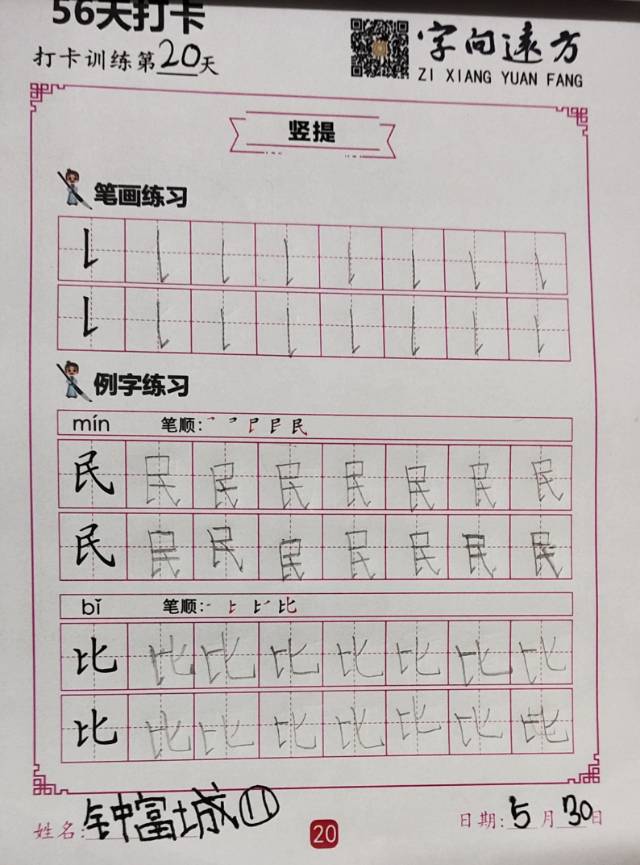 56天打卡
打卡训练第20天
字向远方
ZI XIANG YUAN FANG
竖提
笔画练习
例字练习
mín 笔顺:
民 民 民 民 民 民 民 民
民 民 民 民 民 民 民 民
bǐ 笔顺:
比 比 比 比 比 比 比 比
比 比 比 比 比 比 比 比
姓名:钟富城⑪
20
日期:5月30日